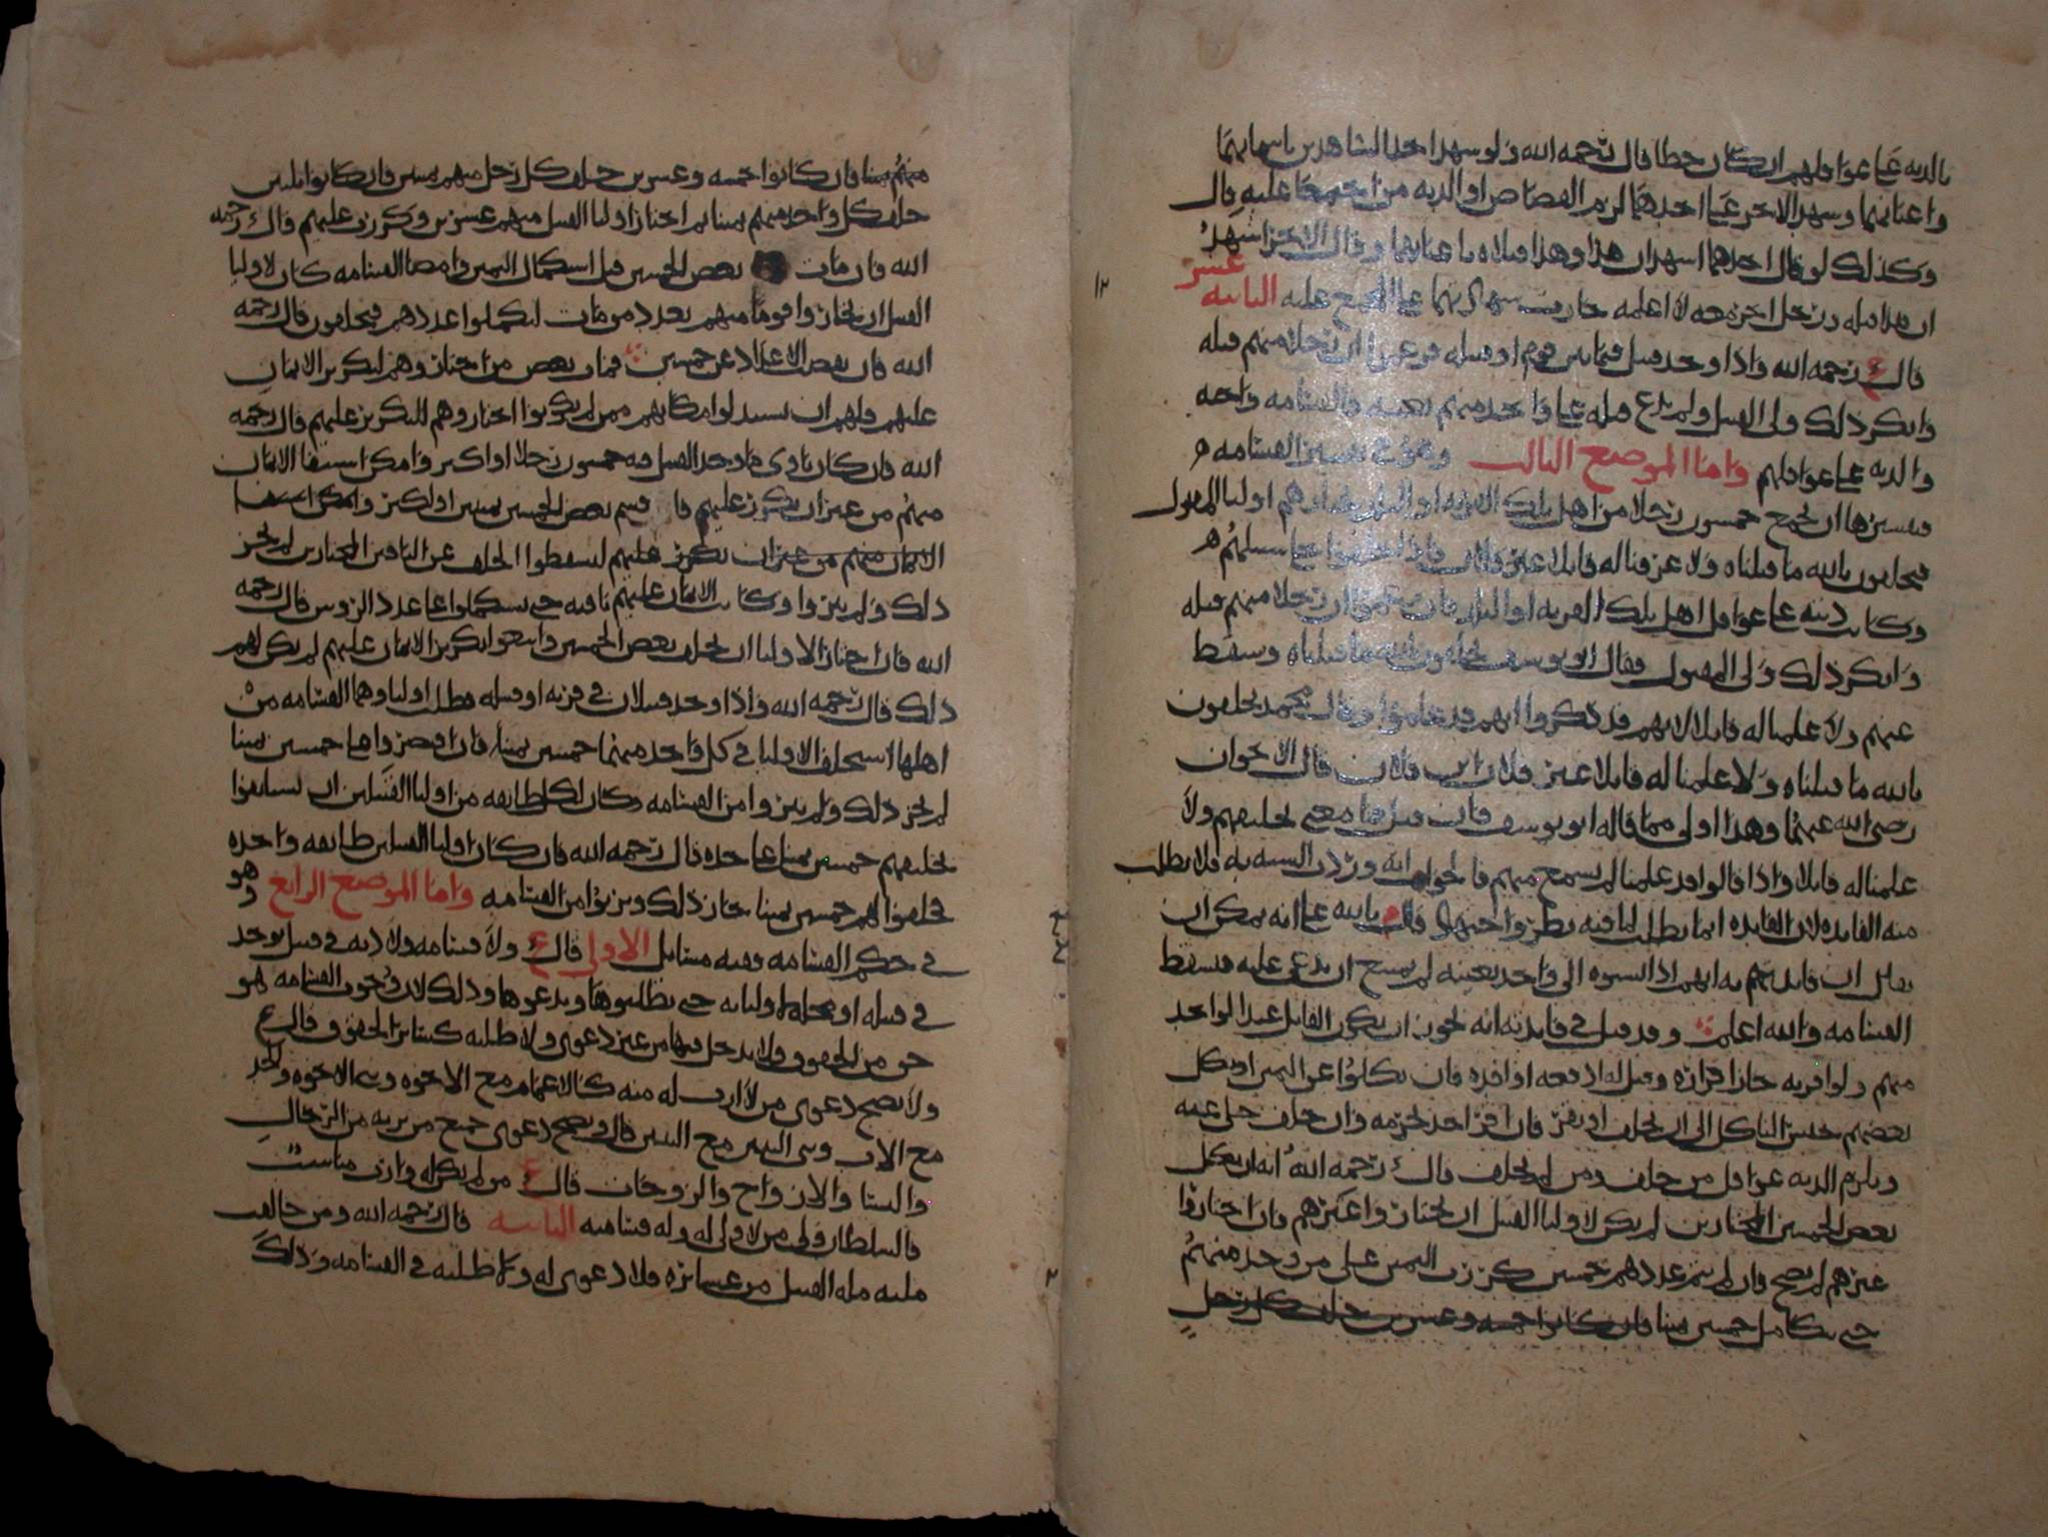 بالديه على عواقلهم ان كان خطا قال رحمه الله ولو شهد احد الشاهدين باسمايهما
واعيانهما وشهد الاخر على احدهما لزم القصاص او الديه من اجمعا عليه قال
وكذلك لو قال احدهما اشهد ان هذا وهذا قتلاه باعيانهما وقال الاخر اشهد
ان هذا قتله ورجل اخر معه لا اعلمه جازت شهادتهما على المجمع عليه الثانيه عشر
قال ع رحمه الله واذا وجد قتيل فيما بين قوم او قبيله فزعموا ان رجلا منهم قتله
وانكر ذلك ولي القتيل ولم يدع قتله على واحد منهم بعينه فالقسامه واجبه
والديه على عواقلهم واما الموضع الثالث وهو في تفسير القسامه
فتفسيرها ان يجمع خمسون رجلا من اهل تلك القريه او البلد يختارهم اوليا المقتول
فيحلفون بالله ما قتلناه ولا عرفنا له قاتلا غير فلان فاذا حلفوا خلا سبيلهم
وكانت ديته على عواقل اهل تلك القريه او البلد فان زعموا ان رجلا منهم قتله
وانكر ذلك ولي المقتول فقال ابو يوسف يحلفون بالله ما قتلناه وسقط
عنهم ولا علمنا له قاتلا لانهم قد ذكروا انهم قد علموا وقال محمد يحلفون
بالله ما قتلناه ولا علمنا له قاتلا غير فلان ابن فلان قال الاخوان
رضي الله عنهما وهذا اولى مما قاله ابو يوسف فان قيل ما معنى تحليفهم ولا
علمنا له قاتلا واذا قالوا قد علمنا لم يسمع منهم فالجواب انه وردت السنه به فلا يطلب
منه الفايده لان الفايده انما يطلب لما فيه نظر واجتهاد قال م بالله على انه يمكن ان
يقال ان فايدتهم به انهم اذا نسبوه الى واحد بعينه لم يمنع ان يدعى عليه فتسقط
القسامه والله اعلم وقد قيل في فايدته انه يجوز ان يكون القاتل عبدا لواحد
منهم ولو اقر به جاز اقراره وقيل له ادفعه او افده فان نكلوا عن اليمين او نكل
بعضهم حبس الناكل الى ان يحلف او يقر فان اقر اخذ بجرمه وان حلف خلي عنه
ويلزم الديه عواقل من حلف ومن لم يحلف قال رحمه الله انه ان نكل
بعض الخمسين المختارين لم يكن لاوليا القتيل ان يختاروا غيرهم فان اختاروا
غيرهم لم يصح فان لم يتم عددهم خمسين كررت اليمين على من وجد منهم
حتى تكامل خمسين يمينا فان كانوا خمسه وعشرين حلف كل رجل
منهم يمينا فان كانوا خمسه وعشرين حلف كل رجل منهم يمينين فان كانوا ثلثين
حلف كل واحد منهم يمينا ثم اختار اوليا القتيل منهم عشرين وكررت عليهم قال رحمه
الله فان مات بعض الخمسين قبل استكمال اليمين وامضا القسامه كان لاوليا
القتيل ان يختاروا قوما منهم بعدد من مات ليكملوا عددهم فيحلفون قال رحمه
الله فان نقصت الاعداد عن خمسين فمات بعض من اختاروهم لتكرير الايمان
عليهم فلهم ان يستبدلوا مكانهم ممن لم يكونوا اختاروهم للتكرير عليهم قال رحمه
الله فان كان باقي ما وجد القتيل فيه خمسون رجلا او اكثر وامكن استيفا الايمان
منهم من غير ان يكرر عليهم فا قسم بعض الخمسين يمينين او اكثر وامكن استيفا
الايمان منهم من غير ان تكرر عليهم ليسقطوا الحلف عن الباقين المختارين لم يجز
ذلك ولم يبروا وكانت الايمان عليهم باقيه حتى يستكملوا على عدد الروس قال رحمه
الله فان اختار الاوليا ان يحلف بعض الخمسين وابتغوا تكرير الايمان عليهم لم يكن لهم
ذلك قال رحمه الله واذا وجد قتيلان في قريه او قبيله فطلب اولياوهما القسامه من
اهلها استحلف الاوليا في كل واحد منهما خمسين يمينا فان اقتصروا على خمسين يمينا
لم يجز ذلك ولم يبروا من القسامه وكان لكل طايفه من اوليا القتيلين ان يستانفوا
تحليفهم خمسين يمينا على حده قال رحمه الله فان كان اوليا القتيلين طايفه واحده
فحلفوا لهم خمسين يمينا جاز ذلك وبروا من القسامه واما الموضع الرابع وهو
في حكم القسامه ففيه مسايل الاولى قال ع ولا قسامه ولا ديه في قتيل يوجد
في قبيله او محله اوليايه حتى يطلبوها ويدعوها وذلك لان وجوب القسامه هو
حق من الحقوق ولا يدخل فيها من غير دعوى ولا طلبه كساير الحقوق قال ع
ولا يصح دعوى من لا ارث له منه كالاعمام مع الاخوه وبني الاخوه والجد
مع الاب وبني البنين مع البنين قال ويصح دعوى جميع من يرثه من الرجال
والنسا والازواج والزوجات قال ع من لم يكن له وارث مناسب
فالسلطان ولي من لا ولي له وله قسامته الثانيه قال رحمه الله ومن خالفت
ملته مله القتيل من عشايره فلا دعوى له ولا طلبه في القسامه وذلك